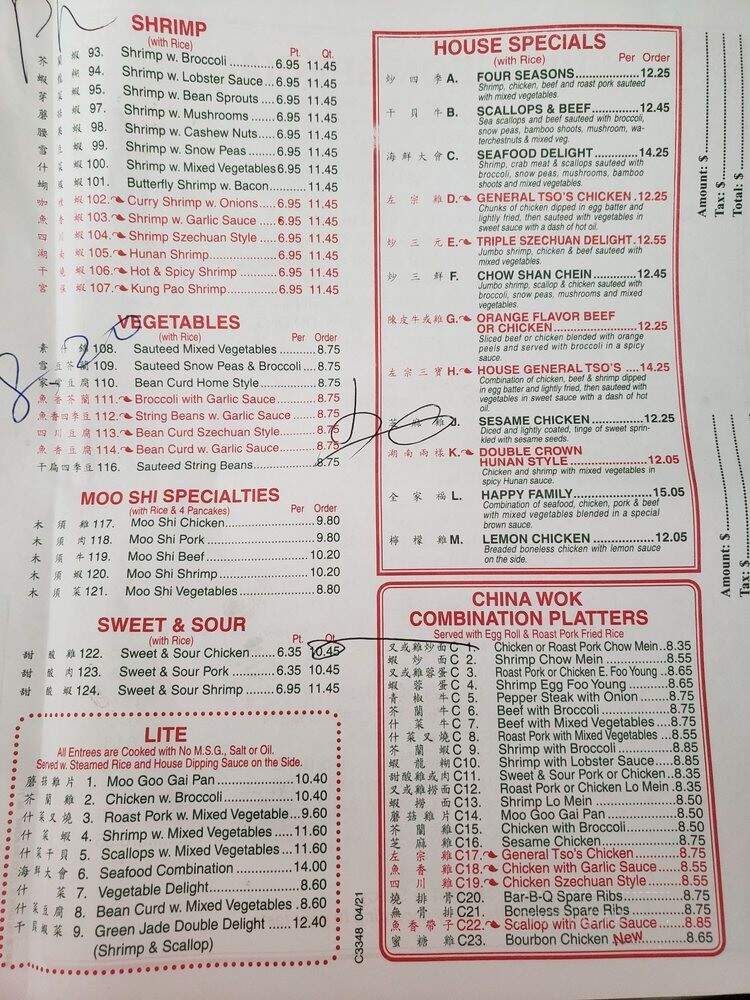 SHRIMP
(with Rice) Pt. Qt.
芥蘭蝦 93. Shrimp w. Broccoli ............6.95 11.45
蝦龍糊 94. Shrimp w. Lobster Sauce...6.95 11.45
芽菜蝦 95. Shrimp w. Bean Sprouts ....6.95 11.45
蘑菇蝦 97. Shrimp w. Mushrooms .......6.95 11.45
腰果蝦 98. Shrimp w. Cashew Nuts.....6.95 11.45
雪豆蝦 99. Shrimp w. Snow Peas .......6.95 11.45
什菜蝦 100. Shrimp w. Mixed Vegetables6.95 11.45
蝴蝶蝦 101. Butterfly Shrimp w. Bacon............11.45
咖喱蝦 102. Curry Shrimp w. Onions.....6.95 11.45
魚香蝦 103. Shrimp w. Garlic Sauce .....6.95 11.45
四川蝦 104. Shrimp Szechuan Style .....6.95 11.45
湖南蝦 105. Hunan Shrimp..................6.95 11.45
干燒蝦 106. Hot & Spicy Shrimp ..........6.95 11.45
宮保蝦 107. Kung Pao Shrimp.............6.95 11.45
VEGETABLES
(with Rice) Per Order
素什錦 108. Sauteed Mixed Vegetables ..........8.75
雪豆芥蘭 109. Sauteed Snow Peas & Broccoli....8.75
家常豆腐 110. Bean Curd Home Style...............8.75
魚香芥蘭 111. Broccoli with Garlic Sauce ..........8.75
魚香四季豆 112. String Beans w. Garlic Sauce ......8.75
四川豆腐 113. Bean Curd Szechuan Style.........8.75
魚香豆腐 114. Bean Curd w. Garlic Sauce.........8.75
干扁四季豆 116. Sauteed String Beans................8.75
MOO SHI SPECIALTIES
(with Rice & 4 Pancakes) Per Order
木須雞 117. Moo Shi Chicken......................9.80
木須肉 118. Moo Shi Pork ..........................9.80
木須牛 119. Moo Shi Beef.........................10.20
木須蝦 120. Moo Shi Shrimp .....................10.20
木須菜 121. Moo Shi Vegetables.................8.80
SWEET & SOUR
(with Rice) Pt. Qt.
甜酸雞 122. Sweet & Sour Chicken.......6.35 10.45
甜酸肉 123. Sweet & Sour Pork ..........6.35 10.45
甜酸蝦 124. Sweet & Sour Shrimp .......6.95 11.45
LITE
All Entrees are Cooked with No M.S.G., Salt or Oil.
Served w. Steamed Rice and House Dipping Sauce on the Side.
蘑菇雞片 1. Moo Goo Gai Pan ..................10.40
芥蘭雞 2. Chicken w. Broccoli..................10.40
什菜叉燒 3. Roast Pork w. Mixed Vegetable...9.60
什菜蝦 4. Shrimp w. Mixed Vegetables .....11.60
什菜干貝 5. Scallops w. Mixed Vegetables...11.60
海鮮大會 6. Seafood Combination ..............14.00
什菜 7. Vegetable Delight.....................8.60
什菜豆腐 8. Bean Curd w. Mixed Vegetables .8.60
干貝蝦菜 9. Green Jade Double Delight .......12.40
(Shrimp & Scallop)
C3348 04/21
8-20
HOUSE SPECIALS
(with Rice) Per Order
炒四季 A. FOUR SEASONS..................12.25
Shrimp, chicken, beef and roast pork sauteed
with mixed vegetables.
干貝牛 B. SCALLOPS & BEEF...............12.45
Sea scallops and beef sauteed with broccoli,
snow peas, bamboo shoots, mushroom, wa-
terchestnuts & mixed veg.
海鮮大會 C. SEAFOOD DELIGHT ............14.25
Shrimp, crab meat & scallops sauteed with
broccoli, snow peas, mushrooms, bamboo
shoots and mixed vegetables.
左宗雞 D. GENERAL TSO'S CHICKEN .12.25
Chunks of chicken dipped in egg batter and
lightly fried, then sauteed with vegetables in
sweet sauce with a dash of hot oil.
炒三元 E. TRIPLE SZECHUAN DELIGHT.12.55
Jumbo shrimp, chicken & beef sauteed with
mixed vegetables.
炒三鮮 F. CHOW SHAN CHEIN ............12.45
Jumbo shrimp, scallop & chicken sauteed with
broccoli, snow peas, mushrooms and mixed
vegetables.
陳皮牛或雞 G. ORANGE FLAVOR BEEF
OR CHICKEN........................12.25
Sliced beef or chicken blended with orange
peels and served with broccoli in a spicy
sauce.
左宗三寶 H. HOUSE GENERAL TSO'S ....14.25
Combination of chicken, beef & shrimp dipped
in egg batter and lightly fried, then sauteed with
vegetables in sweet sauce with a dash of hot
oil.
芝麻雞 J. SESAME CHICKEN ..............12.25
Diced and lightly coated, tinge of sweet sprin-
kled with sesame seeds.
湖南兩樣 K. DOUBLE CROWN
HUNAN STYLE .....................12.05
Chicken and shrimp with mixed vegetables in
spicy Hunan sauce.
全家福 L. HAPPY FAMILY...................15.05
Combination of seafood, chicken, pork & beef
with mixed vegetables blended in a special
brown sauce.
檸檬雞 M. LEMON CHICKEN ...............12.05
Breaded boneless chicken with lemon sauce
on the side.
CHINA WOK
COMBINATION PLATTERS
Served with Egg Roll & Roast Pork Fried Rice
叉或雞炒面 C 1. Chicken or Roast Pork Chow Mein..8.35
蝦炒面 C 2. Shrimp Chow Mein ....................8.55
叉或雞蓉蛋 C 3. Roast Pork or Chicken E. Foo Young ..8.65
蝦蓉蛋 C 4. Shrimp Egg Foo Young...............8.65
青椒牛 C 5. Pepper Steak with Onion ............8.75
芥蘭牛 C 6. Beef with Broccoli.....................8.75
什菜牛 C 7. Beef with Mixed Vegetables........8.75
什菜叉燒 C 8. Roast Pork with Mixed Vegetables ...8.55
芥蘭蝦 C 9. Shrimp with Broccoli .................8.85
蝦龍糊 C10. Shrimp with Lobster Sauce.........8.85
甜酸雞或肉 C11. Sweet & Sour Pork or Chicken..8.35
叉或雞撈面 C12. Roast Pork or Chicken Lo Mein .8.35
蝦撈面 C13. Shrimp Lo Mein......................8.50
蘑菇雞片 C14. Moo Goo Gai Pan ...................8.50
芥蘭雞 C15. Chicken with Broccoli................8.50
芝麻雞 C16. Sesame Chicken .....................8.75
左宗雞 C17. General Tso's Chicken..............8.75
魚香雞 C18. Chicken with Garlic Sauce........8.55
四川雞 C19. Chicken Szechuan Style ..........8.55
燒排骨 C20. Bar-B-Q Spare Ribs.................8.75
無骨排 C21. Boneless Spare Ribs ...............8.75
魚香帶子 C22. Scallop with Garlic Sauce........8.85
蜜糖雞 C23. Bourbon Chicken New..........8.65
Amount: $
Tax: $
Total: $
Amount: $
Tax: $